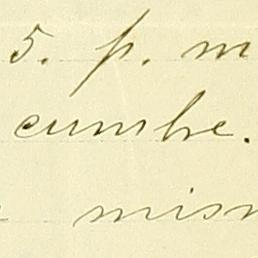 5. p. m
cumbre.
mism